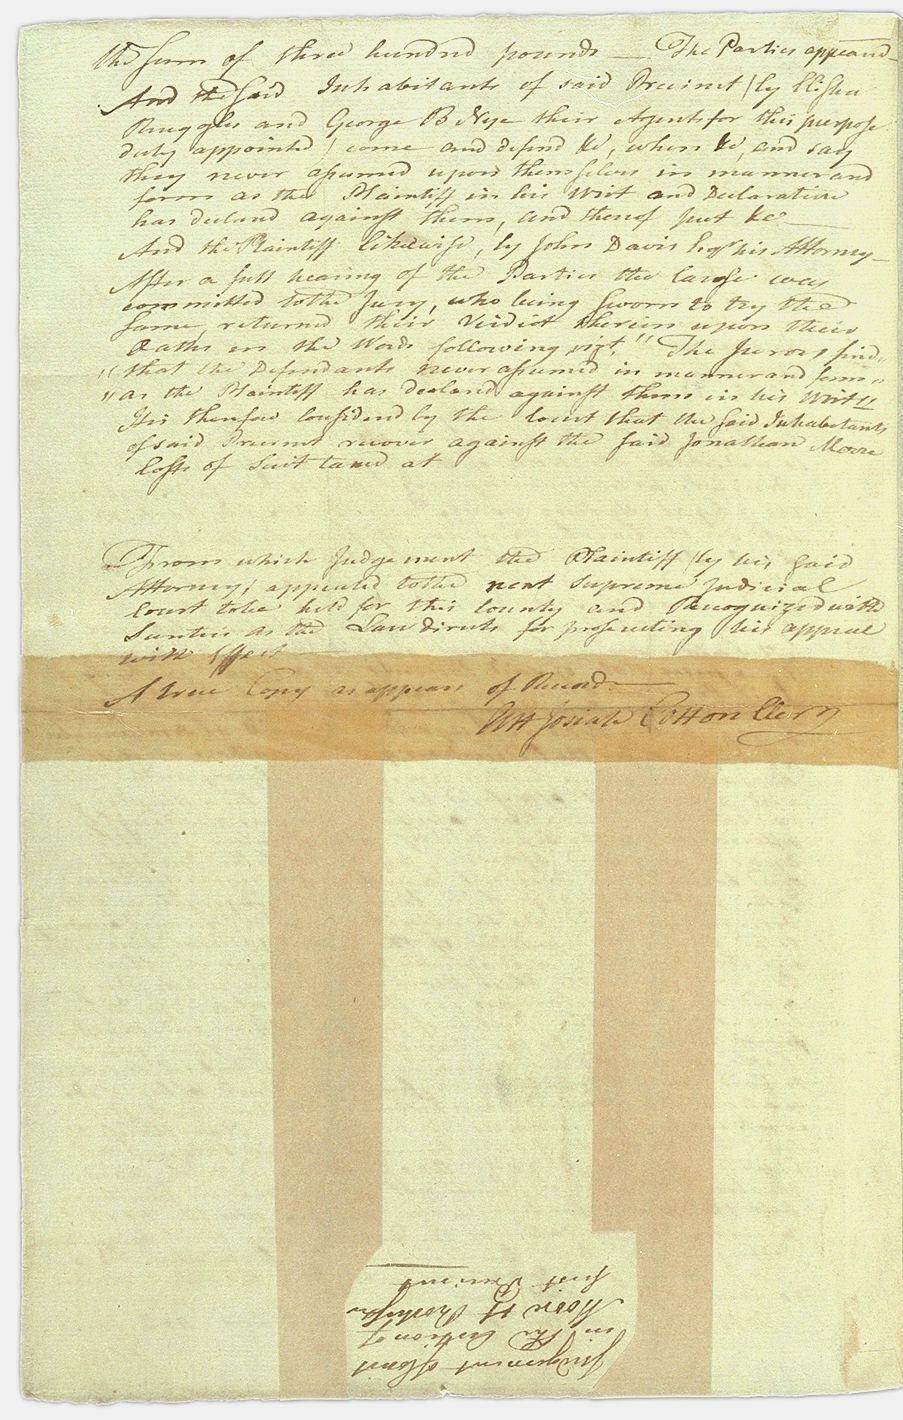 the Sum of three hundred pounds — The Parties appeared —
And the said Inhabitants of said Precinct (by Elisha
Ruggles and George B Nye their Agents for this purpose
duly appointed) come and defend &c, when &c, and say
they never assumed upon themselves in manner and
form as the Plaintiff in his Writ and Declaration
has declared against them, and thereof put &c —
And the Plaintiff likewise, by John Davis Esqr his Attorney —
After a full hearing of the Parties the Cause was
committed to the Jury, who being Sworn to try the
Same, returned their Verdict therein upon their
Oaths in the Words following vizt, " The Jurors find
" that the Defendants never assumed in manner and form "
" as the Plaintiff has declared against them in his Writ "
It is therefore Considered by the Court that the said Inhabitants
of said Precinct recover against the said Jonathan Moore
Costs of Suit taxed at
From which Judgement the Plaintiff (by his said
Attorney) appealed to the next Supreme Judicial
Court to be held for this County and Recognized with
Sureties as the Law directs for prosecuting his appeal
with Effect —
A true Copy as appears of Record —
Att Josiah Cotton Cler
Judgement of Court
in the Action of
Moore vs Rochester
first Precinct